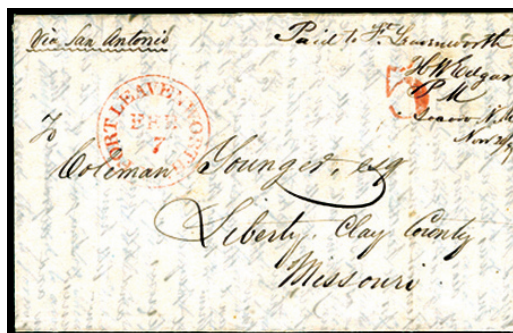 Via San Antonio
Paid to Ft. Leavenworth
H W Edgar
P M
N. M.
Nov
5
FORT LEAVENWORTH
FEB
7
To
Coleman Younger, esq
Liberty, Clay County,
Missouri.